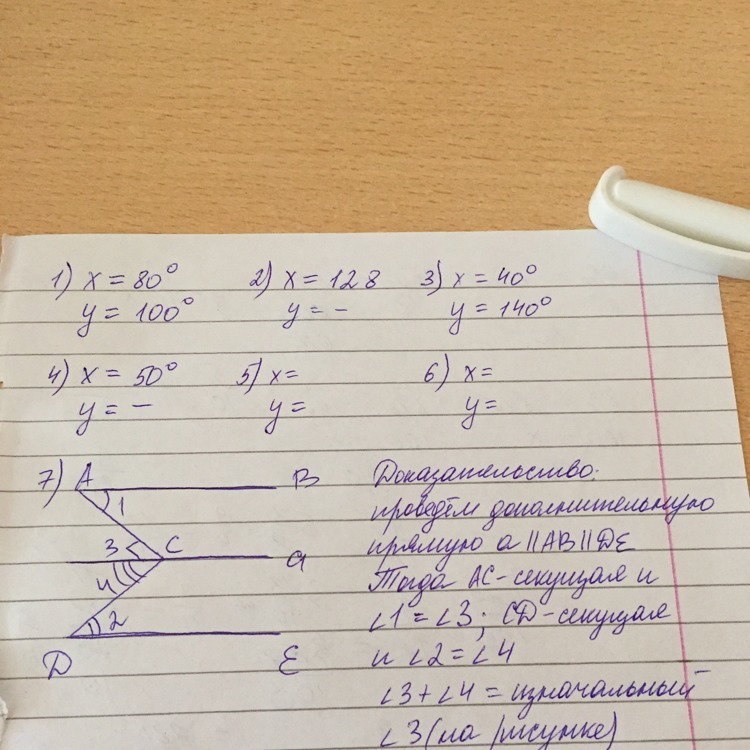 1) x = 80° 2) x = 128 3) x = 40°
y = 100° y = - y = 140°
4) x = 50° 5) x = 6) x =
y = - y = y =
7) A B
1
3 C a
4
2
D E
Доказательство:
проведём дополнительную
прямую a || AB || DE
Тогда AC - секущая и
∠1 = ∠3; CD - секущая
и ∠2 = ∠4
∠3 + ∠4 = изначальный
∠3 (на рисунке)